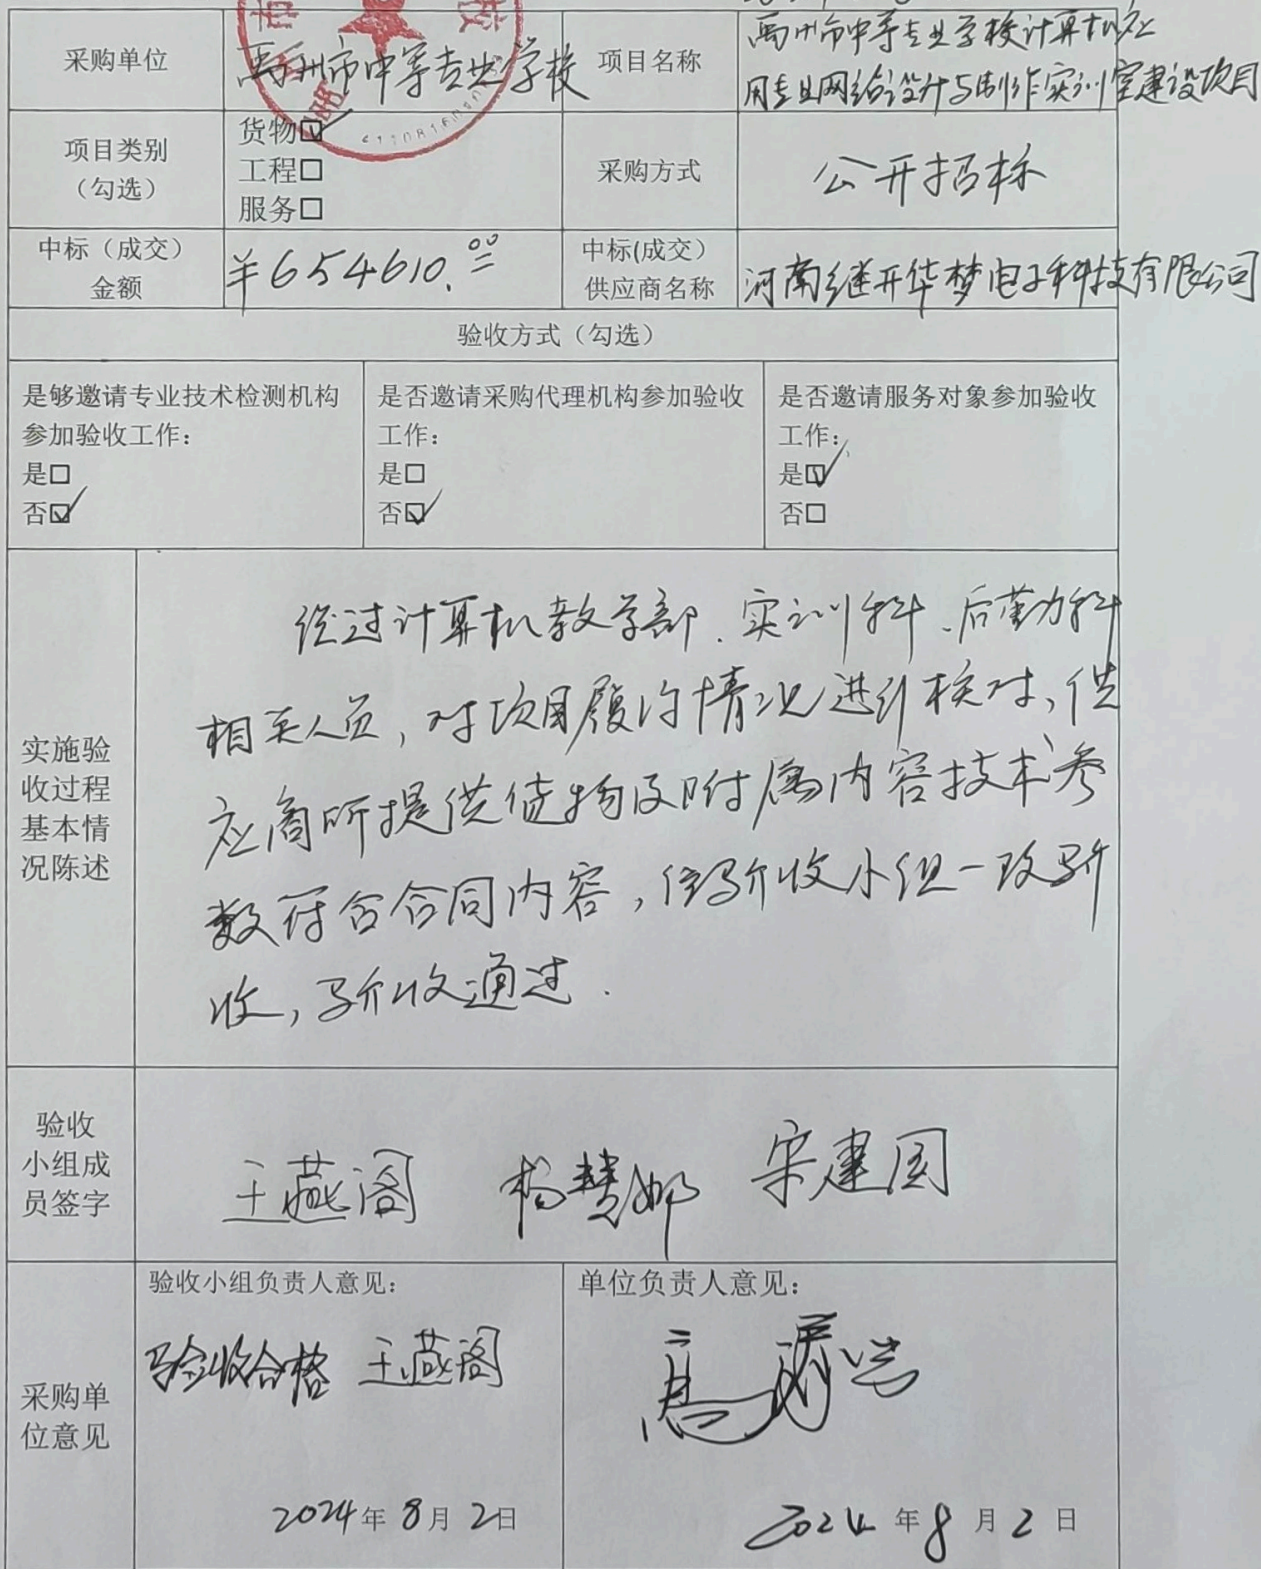 采购单位 禹州市中等专业学校 项目名称 禹州市中等专业学校计算机应
用专业网络设计与制作实训室建设项目
项目类别
（勾选）
货物☑
工程□
服务□
采购方式 公开招标
中标（成交）
金额
¥654610.00
中标(成交)
供应商名称
河南继开华梦电子科技有限公司
验收方式（勾选）
是够邀请专业技术检测机构
参加验收工作：
是□
否☑
是否邀请采购代理机构参加验收
工作：
是□
否☑
是否邀请服务对象参加验收
工作：
是☑
否□
实施验
收过程
基本情
况陈述
经过计算机教学部、实训科、后勤科
相关人员，对项目履约情况进行核对，供
应商所提供货物及附属内容技术参
数符合合同内容，经验收小组一致验
收，验收通过.
验收
小组成
员签字
王燕阁 杨慧娜 宋建国
采购单
位意见
验收小组负责人意见：
验收合格 王燕阁
2024年8月2日
单位负责人意见：
2024年8月2日